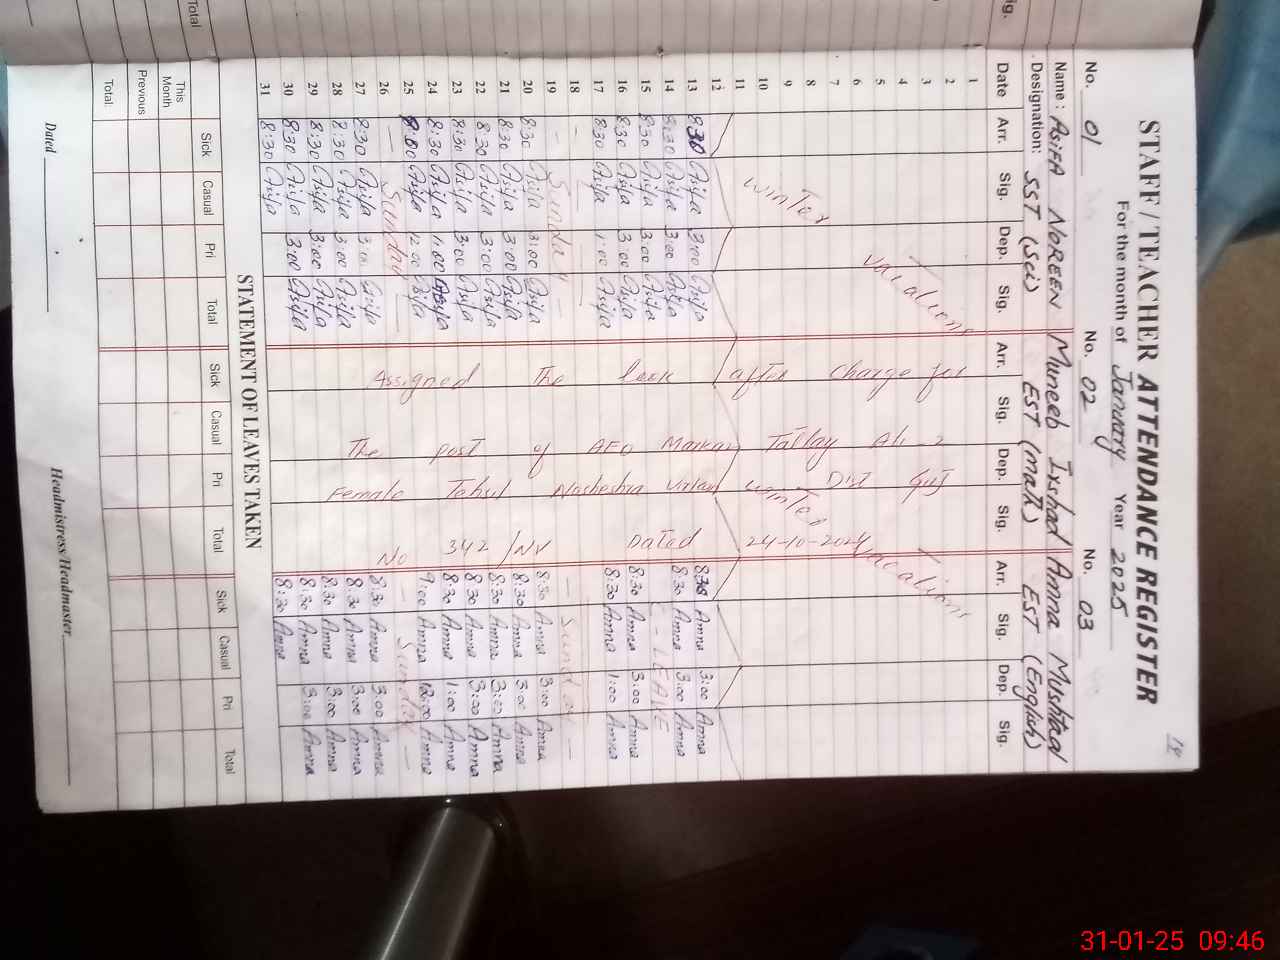 18
STAFF / TEACHER ATTENDANCE REGISTER
For the month of January Year 2025
No. 01 No. 02 No. 03
Name : Asifa Noreen Muneeb Irshad Amna Mushtaq
Designation: SST (Sci) EST (Math) EST (English)
Date Arr. Sig. Dep. Sig. Arr. Sig. Dep. Sig. Arr. Sig. Dep. Sig.
1
2
3
4
5
6
7
8
9
10
11
12
winter vacations
winter vacations
Assigned The look after Charge for
The post of AEO Markaz Tatlay Ali-2
Female Tehsil Nosheshra Virkan Dist Guj
No 342 /NV Dated 24-10-2024
13 8:30 Asifa 3:00 Asifa 8:30 Amna 3:00 Amna
14 8:30 Asifa 3:00 Asifa 8:30 Amna 3:00 Amna
15 8:30 Asifa 3:00 Asifa LEAVE
16 8:30 Asifa 3:00 Asifa 8:30 Amna 3:00 Amna
17 8:30 Asifa 1:00 Asifa 8:30 Amna 1:00 Amna
18
19 Sunday Sunday
20 8:30 Asifa 3:00 Asifa 8:30 Amna 3:00 Amna
21 8:30 Asifa 3:00 Asifa 8:30 Amna 3:00 Amna
22 8:30 Asifa 3:00 Asifa 8:30 Amna 3:00 Amna
23 8:30 Asifa 3:00 Asifa 8:30 Amna 3:00 Amna
24 8:30 Asifa 1:00 Asifa 8:30 Amna 1:00 Amna
25 9:00 Asifa 12:00 Asifa 9:00 Amna 12:00 Amna
26 Sunday Sunday
27 8:30 Asifa 3:00 Asifa 8:30 Amna 3:00 Amna
28 8:30 Asifa 3:00 Asifa 8:30 Amna 3:00 Amna
29 8:30 Asifa 3:00 Asifa 8:30 Amna 3:00 Amna
30 8:30 Asifa 3:00 Asifa 8:30 Amna 3:00 Amna
31 8:30 Asifa 8:30 Amna
STATEMENT OF LEAVES TAKEN
Sick Casual Pri Total Sick Casual Pri Total Sick Casual Pri Total
This Month
Previous
Total:
Dated Headmistress/Headmaster
ig.
Total
31-01-25 09:46